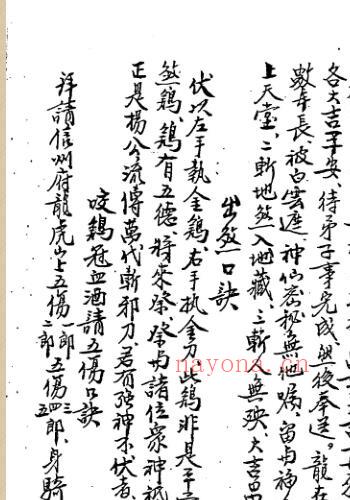 各大吉平安、待弟子事完成、與後奉送。龍
數弄長、被白雲遮、神仙密秘無嘱、留与
上天堂、二斬地煞入地藏、三斬人無殃、大吉昌
出煞口訣
伏以左手执金鷄、右手执金刀、此鷄非是平
煞鷄、鷄有五德、將來祭、祭与諸位衆神祗
正是楊公流傳萬代斬邪刀、若有強神不伏者、
咬鷄冠血酒請五傷口訣
拜請信州府龍虎山上五傷一郎二郎五傷三郎四郎、身騎
nayona.cn